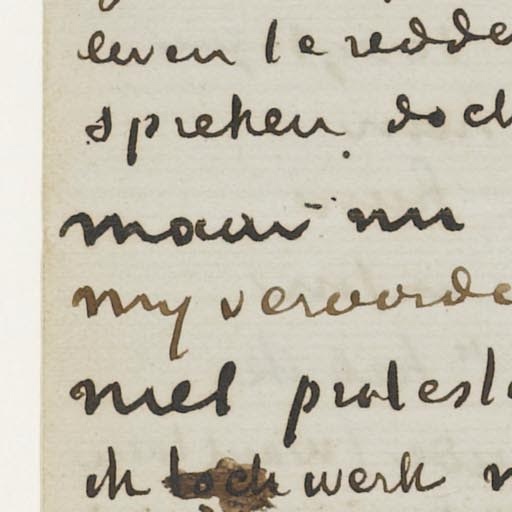 leven te redde
spreken doch
maar nu
my veroorde
niet proteste
ik toch werk